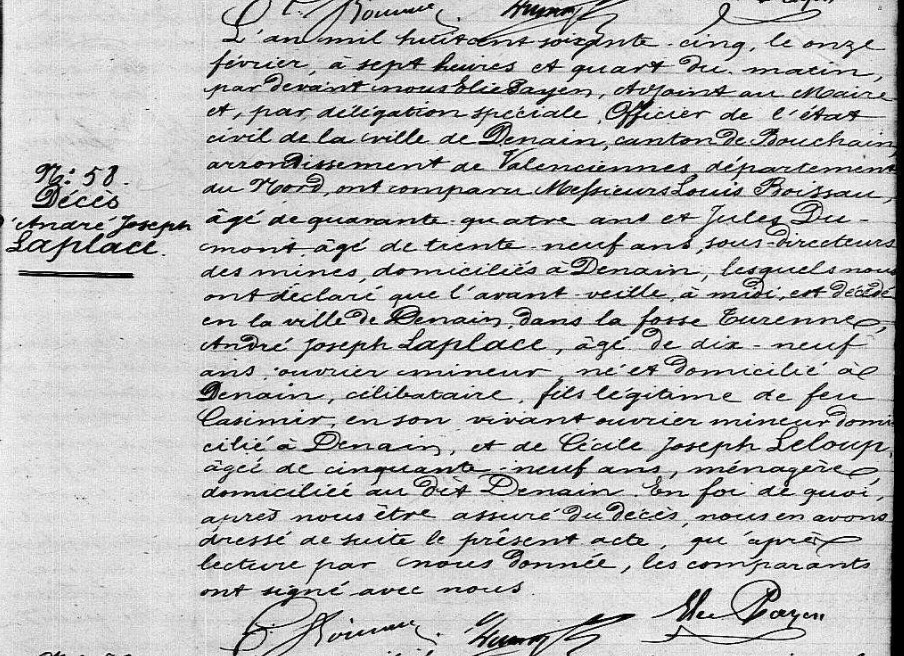 L'an mil huit cent soixante-cinq, le onze
février, à sept heures et quart du matin,
par devant nous Elie Payen, Adjoint au Maire
et, par délégation spéciale, Officier de l'état
civil de la ville de Denain, canton de Bouchain,
arrondissement de Valenciennes département
du Nord, ont comparu Messieurs Louis Boizeau,
N.º 58.
Décès
d'André Joseph
Laplace.
âgé de quarante-quatre ans et Jules Du-
mont, âgé de trente-neuf ans, sous-directeurs
des mines, domiciliés à Denain, lesquels nous
ont déclaré que l'avant-veille, à midi, est décédé
en la ville de Denain, dans la fosse Turenne,
André Joseph Laplace, âgé de dix-neuf
ans, ouvrier mineur, né et domicilié à
Denain, célibataire, fils légitime de feu
Casimir, en son vivant ouvrier mineur domi
cilié à Denain, et de Cécile Joseph Leloup,
âgée de cinquante-neuf ans, ménagère
domiciliée au dit Denain. En foi de quoi,
après nous être assuré du décès, nous en avons
dressé de suite le présent acte, qu'après
lecture par nous donnée, les comparants
ont signé avec nous.
Elie Payen